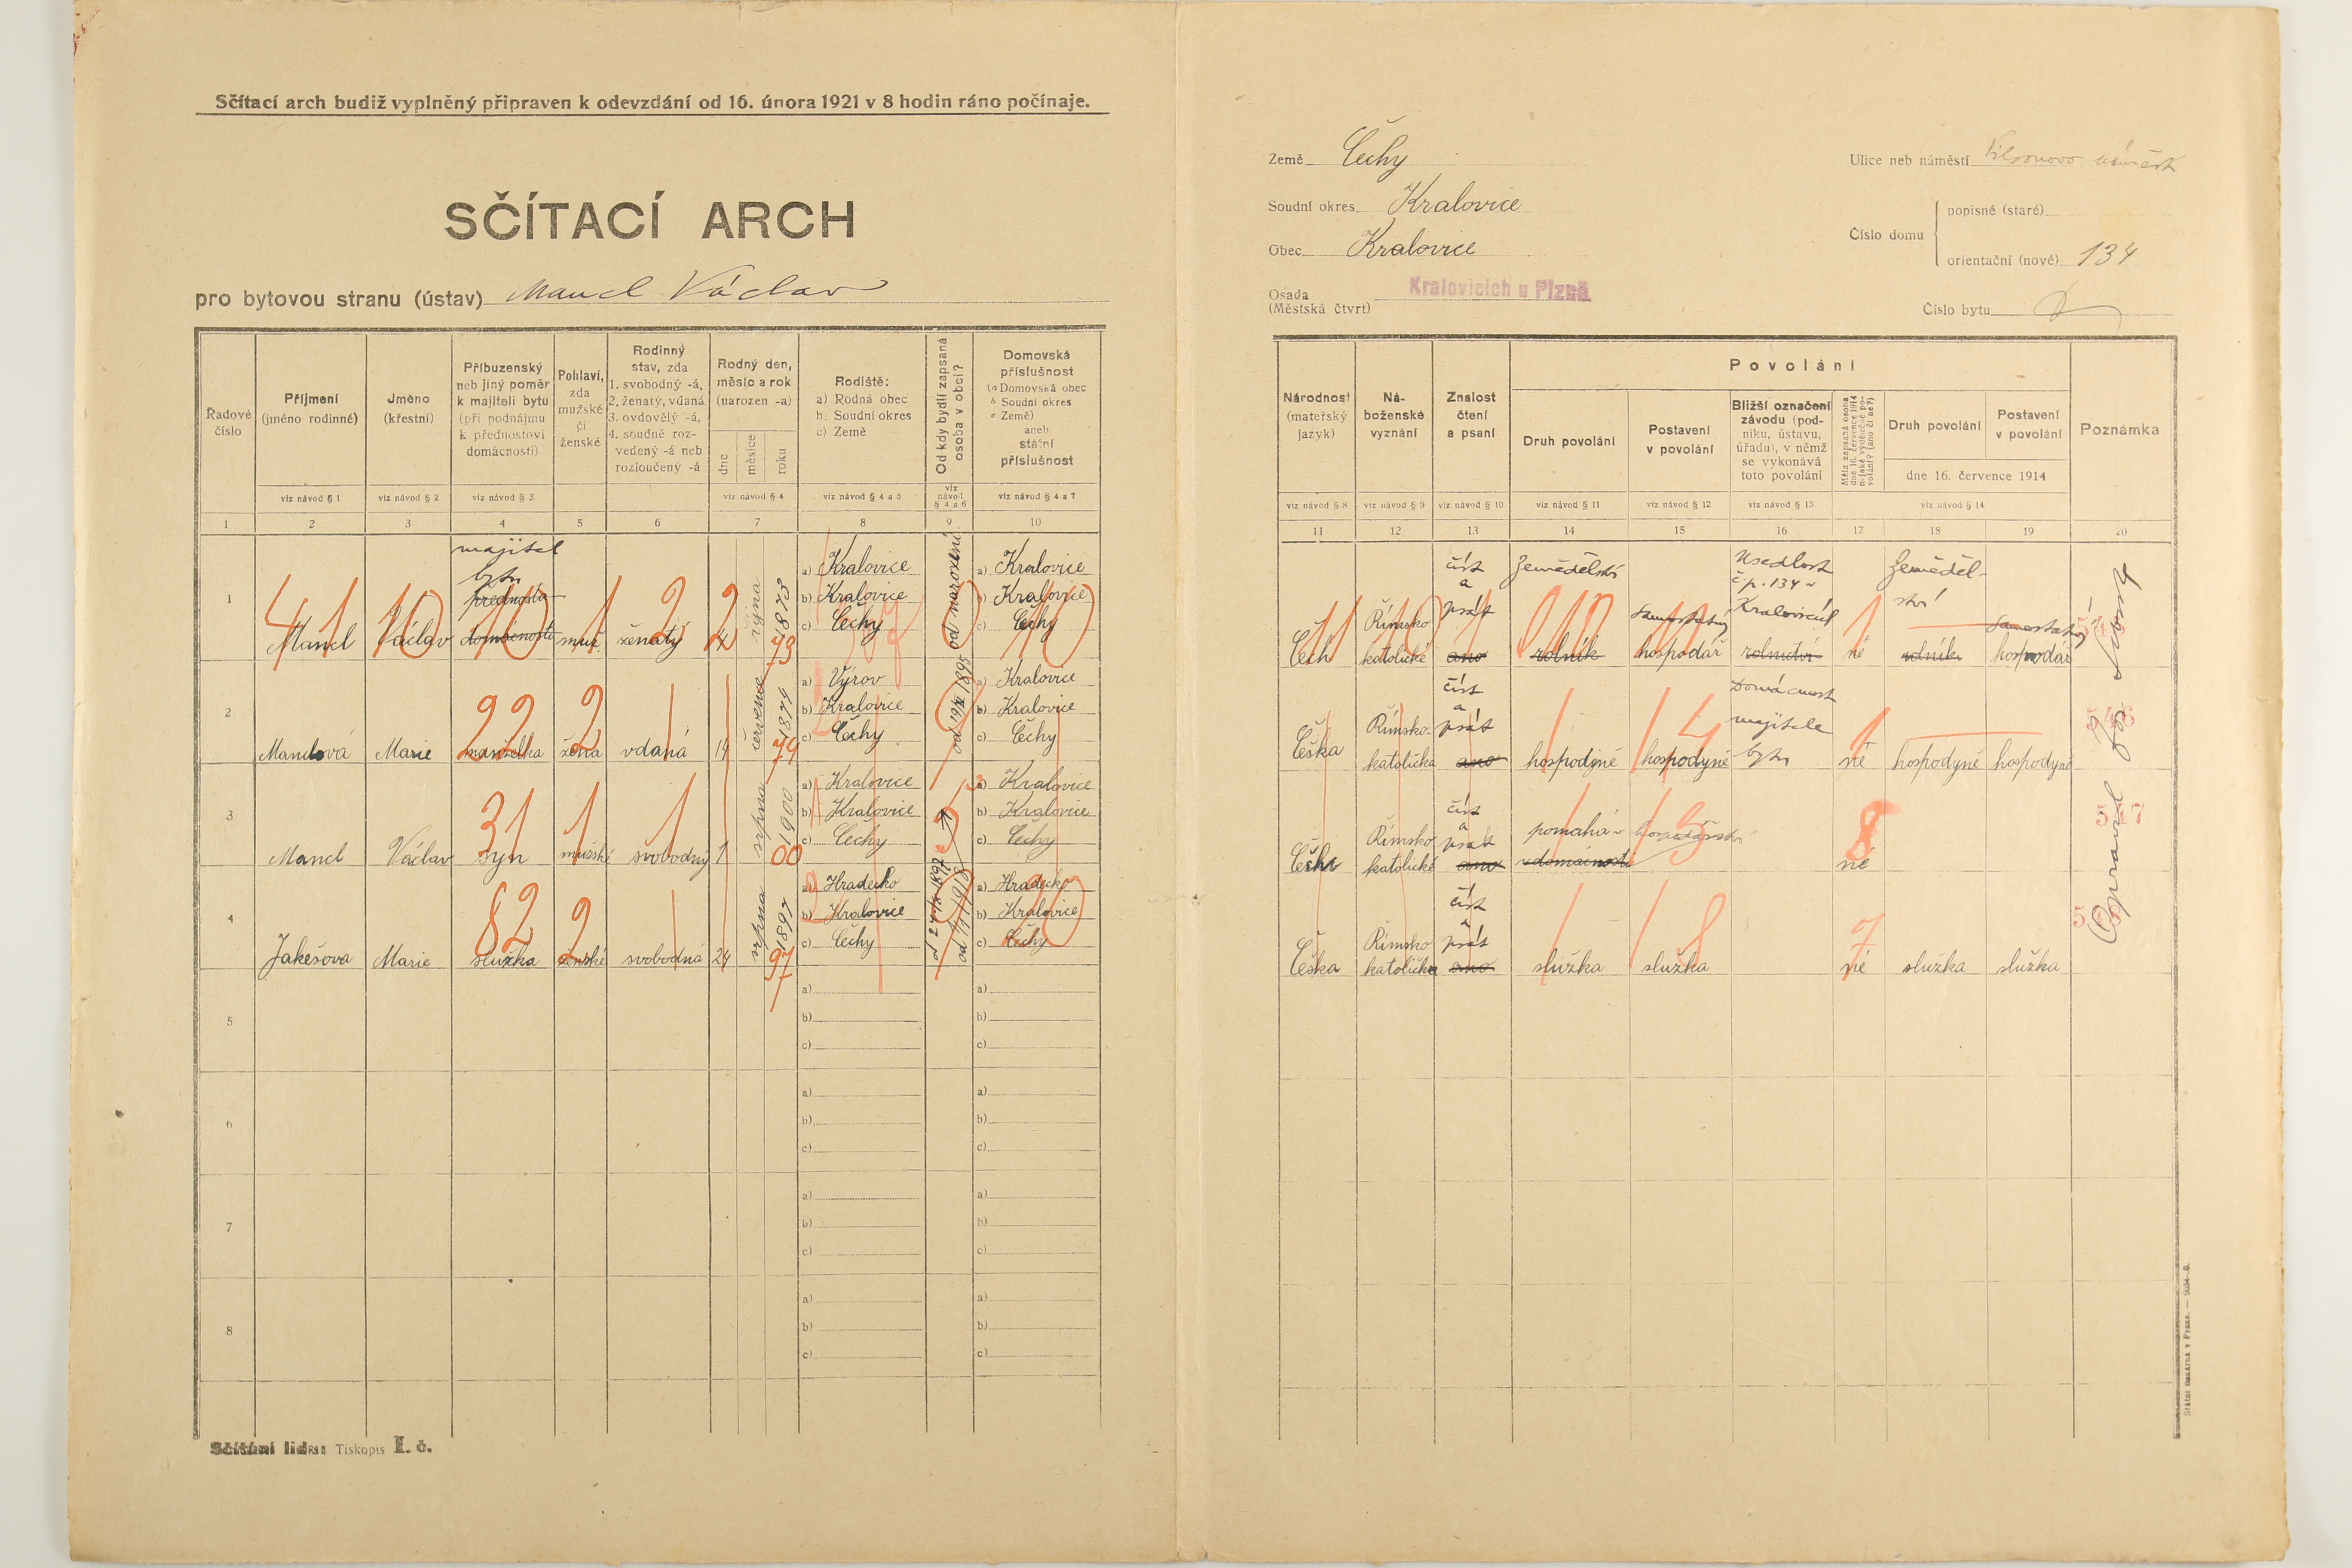 Sčítací arch budiž vyplněný připraven k odevzdání od 16. února 1921 v 8 hodin ráno počínaje.
SČÍTACÍ ARCH
pro bytovou stranu (ústav) Mancl Václav
Země Čechy
Soudní okres Kralovice
Obec Kralovice
Osada
(Městská čtvrť)
Kralovicích u Plzně
Ulice neb náměstí
Číslo domu
popisné (staré)
orientační (nové) 134
Číslo bytu
Řadové číslo
Příjmení (jméno rodinné)
Jméno (křestní)
Příbuzenský neb jiný poměr k majiteli bytu (při podnájmu k přednostovi domácnosti)
Pohlaví, zda mužské či ženské
Rodinný stav, zda 1. svobodný -á, 2. ženatý, vdaná 3. ovdovělý -á, 4. soudně rozvedený -á neb rozloučený -á
Rodný den, měsíc a rok (narozen -a)
dne měsíce roku
Rodiště: a) Rodná obec b) Soudní okres c) Země
Od kdy bydlí zapsaná osoba v obci?
Domovská příslušnost (a Domovská obec b Soudní okres c Země) aneb státní příslušnost
viz návod § 1
viz návod § 2
viz návod § 3
viz návod § 4
viz návod § 4 a 5
viz návod § 4 a 6
viz návod § 4 a 7
1 2 3 4 5 6 7 8 9 10
Národnost (mateřský jazyk)
Náboženské vyznání
Znalost čtení a psaní
Povolání
Druh povolání
Postavení v povolání
Bližší označení závodu (podniku, ústavu, úřadu), v němž se vykonává toto povolání
Druh povolání
Postavení v povolání
dne 16. července 1914
Poznámka
viz návod § 8
viz návod § 9
viz návod § 10
viz návod § 11
viz návod § 12
viz návod § 13
viz návod § 14
11 12 13 14 15 16 17 18 19 20
1 Mancl Václav majitel bytu přednosta domácnosti muž. ženatý 2 října 1873 73
a) Kralovice
b) Kralovice
c) Čechy
od narození
a) Kralovice
b) Kralovice
c) Čechy
Čech Římsko katolické číst a psát ano Zemědělství rolník samostatný hospodář Usedlost č.p. 134 v Kralovicích rolnictví né Zemědělství rolník samostatný hospodář
2 Manclová Marie manželka žena vdaná 14 července 1879 79
a) Výrov
b) Kralovice
c) Čechy
a) Kralovice
b) Kralovice
c) Čechy
Češka Římsko-katolická číst a psát ano hospodyně hospodyně Domácnost majitele bytu né hospodyně hospodyně
3 Mancl Václav syn mužské svobodný 1 srpna 1900 00
a) Kralovice
b) Kralovice
c) Čechy
a) Kralovice
b) Kralovice
c) Čechy
Římsko katolické číst a psát ano pomáhá v hospodářství v domácnosti né
4 Jakešova Marie služka ženské svobodná 24 srpna 1897 97
a) Hradecko
b) Kralovice
c) Čechy
a) Hradecko
b) Kralovice
c) Čechy
Češka Římsko katolička číst a psát ano služka služka né služka služka
5
a)
b)
c)
a)
b)
c)
6
a)
b)
c)
a)
b)
c)
7
a)
b)
c)
a)
b)
c)
8
a)
b)
c)
a)
b)
c)
Sčítání lidu: Tiskopis I. č.